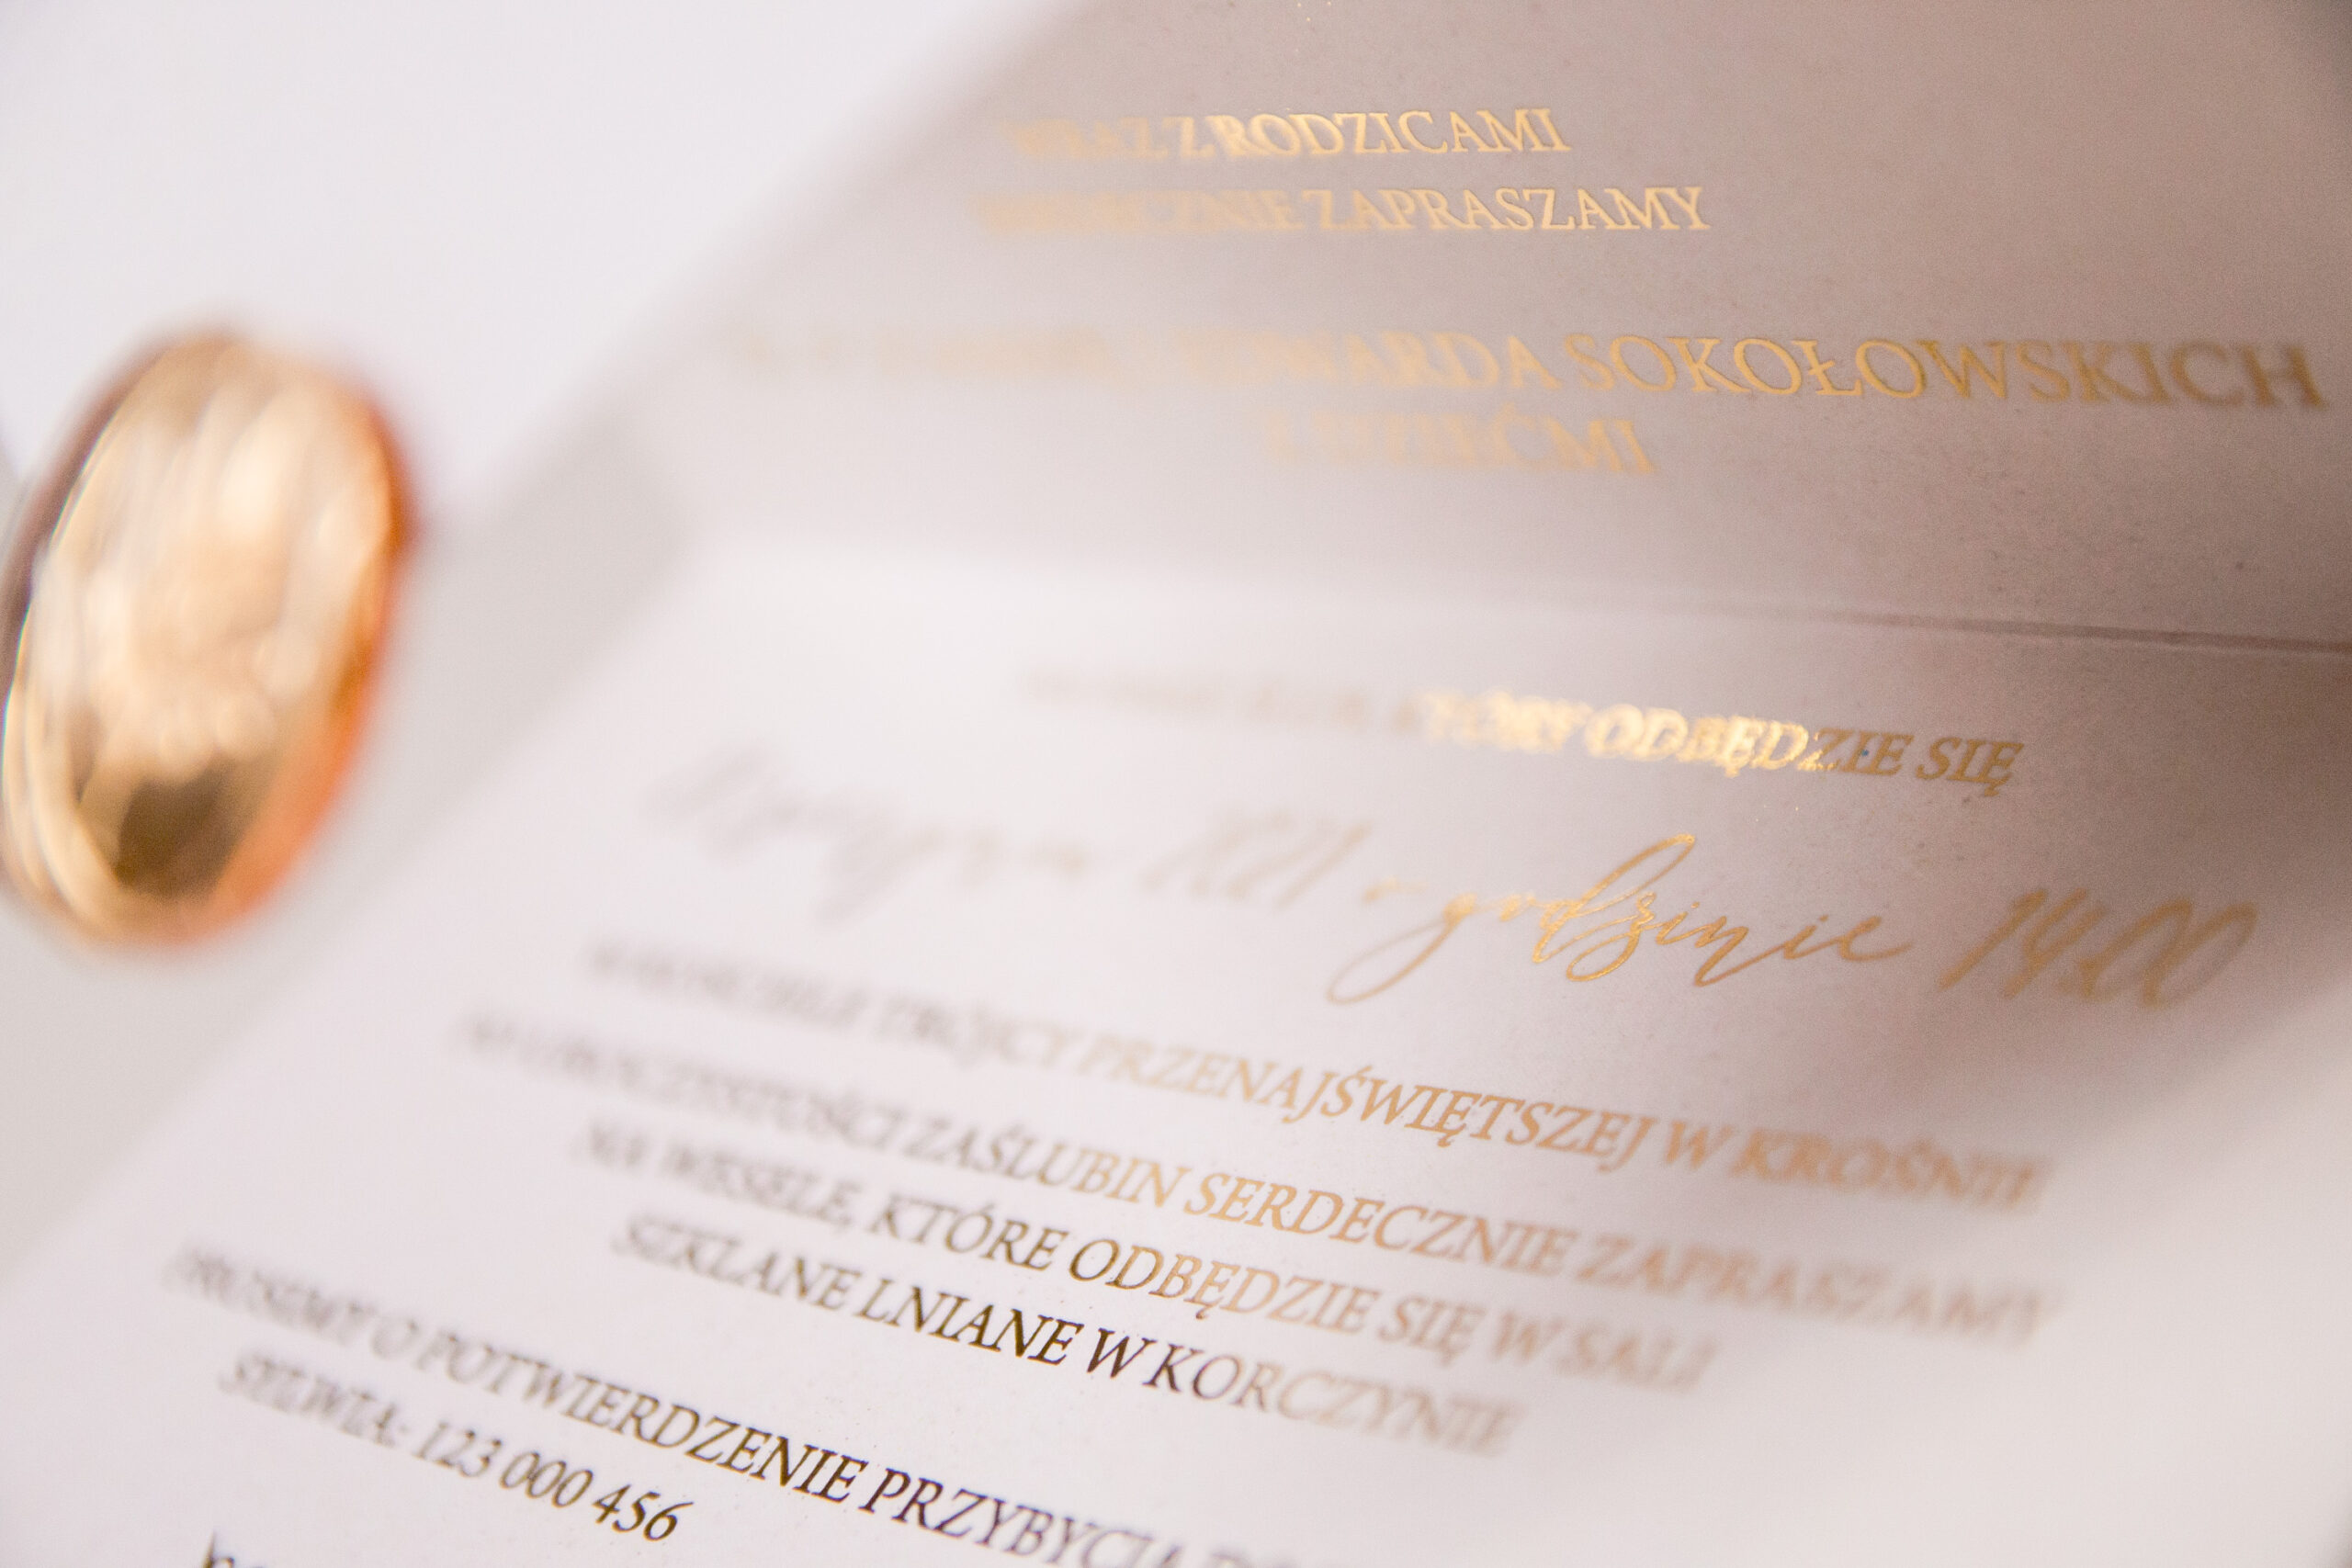 WRAZ Z RODZICAMI
SERDECZNIE ZAPRASZAMY
EDWARDA SOKOŁOWSKICH
Z DZIEĆMI
KTÓRY ODBĘDZIE SIĘ
2021 o godzinie 14.00
W KOŚCIELE TRÓJCY PRZENAJŚWIĘTSZEJ W KROŚNIE
PO UROCZYSTOŚCI ZAŚLUBIN SERDECZNIE ZAPRASZAMY
NA WESELE, KTÓRE ODBĘDZIE SIĘ W SALI
SZKLANE LNIANE W KORCZYNIE
PROSIMY O POTWIERDZENIE PRZYBYCIA
SYLWIA: 123 000 456